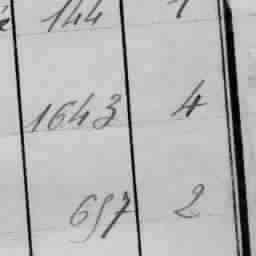 144 1
1643 4
657 2